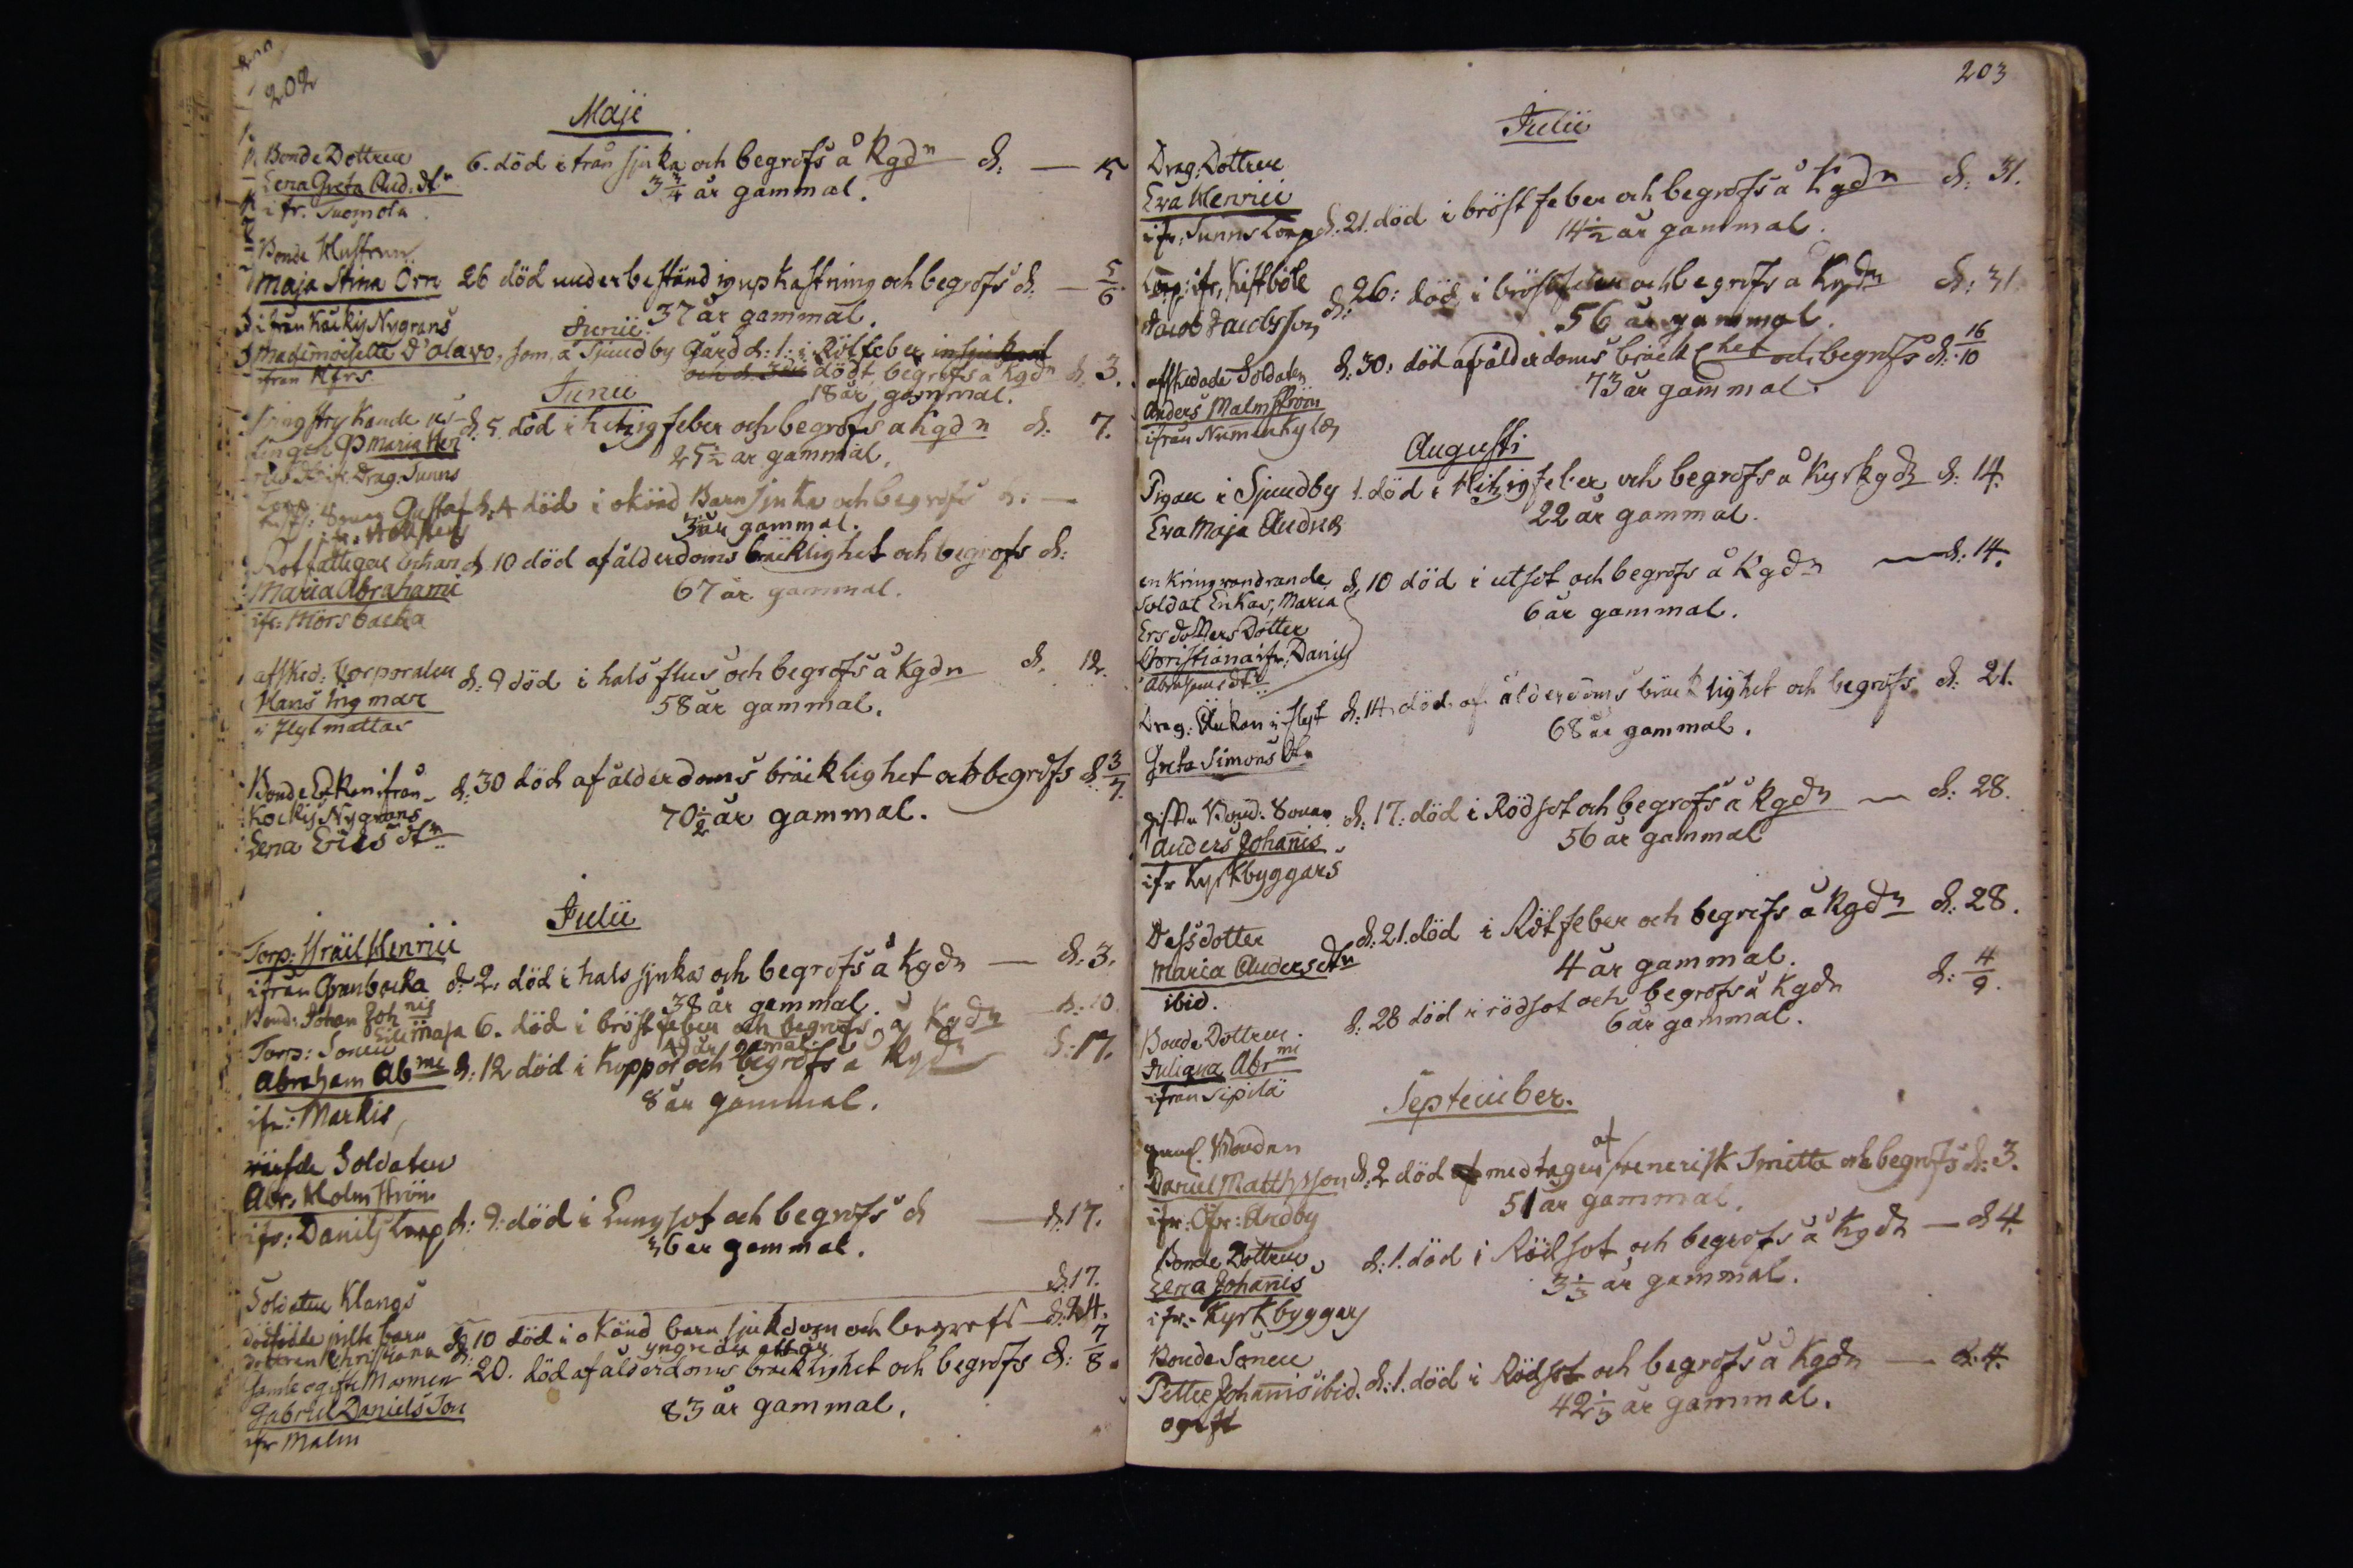 202
Maji
Bonde Dottren
Lena Greta And: dtr 6. död i från sjuka och begrofs å Kgdn d. — 5
ifr. Suomola 3 3/4 år gammal.
Bonde Hustrun
Maja Stina Örn 26 död under beständig upkastning och begrofs d. — 5/6
ifrån Käckis Nygrans 37 år gammal.
Junii
Mademoiselle D'olavo, som, å Sjundby Gård d: 1: i Rötfeber
ifrån Kfrs dödt, begrofs å Kgdn d. 3.
Junii 18 år gammal.
d: 5. död i hetzig feber och begrofs å Kgdn d. 7.
Maria Hen 25 1/2 år gammal.
ifr. Drag. Sunns
Torp
Gustaf d: 4 död i okänd Barnsjuka och begrofs d. —
3 år gammal.
Rotfattigas Enkan d. 10 död af ålderdoms bräklighet och begrofs d:
Maria Abrahami 67 år gammal.
ifr: Mörsbacka
afsked: Corporalen d: 9 död i halsflus och begrofs å Kgdn d. 12.
Hans Ingmar 58 år gammal.
i Flytmattas
Bonde Enkan ifrån d: 30 död af ålderdoms bräklighet och begrofs d 3/7.
Kockis Nygrans 70 1/2 år gammal.
Lena Erics dtr
Julii
Torp: Israel Henrici
ifrån Granbacka d: 2. död i halssjuka och begrofs å Kgdn — d. 3.
38 år gammal.
Bond: Johan Joh nis
Maja 6. död i bröstfeber och begrofs å Kgdn d: 10
Torp: Sonen 49 år gamal.
Abraham Ab mi d: 12 död i Koppor och begrofs å Kgdn d: 17.
ifr: Markis, 8 år gammal.
Soldaten
Abr. Holmström
ifr: Danils torp d: 9. död i Lungsot och begrofs d — d. 17.
36 år gammal.
Soldaten Klangs d. 17.
dödfödde barn
dottren Christiana d 10 död i okänd barn sjukdom och begrofs — d. 24.
yngre än ett år
gamle ogifte Mannen d: 20. död af ålderdoms bräklighet och begrofs d: 7/8.
Gabriel Daniels Son 83 år gammal.
ifr Malm
203
Julii
Drag: Dottren
Eva Henrici
ifr: Sunns torp d. 21. död i bröstfeber och begrofs å Kgdn d: 31.
14 1/2 år gammal.
Torp: ifr. Kistböle
Jacob Jacobsson d: 26: död i bröstfeber och begrofs å Kgdn d: 31.
56 år gammal.
afskedade Soldaten d: 30. död af ålderdoms bräcklighet och begrofs d: 16/10
Anders Malmström 73 år gammal.
ifrån Numenkylä
Augusti
Pigan i Sjundby 1. död i Hitzig feber och begrofs å Kyrkgdn d: 14.
Eva Maja 22 år gammal.
en Kringvandrande d. 10 död i utsot och begrofs å Kgdn — d. 14.
Soldat Enkas, Maria 6 år gammal.
Ersdotters Dotter
Christiana ifr. Danils
Abrahams dtr
Drag: Enkan i Flyt d: 14. död af ålderdoms bräklighet och begrofs d: 21.
Greta Simons dtr 68 år gammal.
gifta Bond. Sonen d: 17: död i Rödsot och begrofs å Kgdn — d: 28.
Anders Johannis 56 år gammal
ifr Kyrkbyggars
Dess dotter d: 21. död i Rötfeber och begrofs å Kgdn d: 28.
Maria Anders dtr 4 år gammal.
ibid.
Bonde Dottren d. 28 död i rödsot och begrofs å Kgdn d: 4/9.
Juliana Abr mi 6 år gammal.
ifrån Sipilä
September.
gaml. Bonden af
Daniel Mattsson d. 2 död medtagen venerisk Smitta och begrofs d: 3.
ifr: Öfr: Andby 51 år gammal.
Bonde Dottren d: 1. död i Rödsot och begrofs å Kgdn — d 4.
Lena Johannis 3 1/3 år gammal.
ifr: Kyrkbyggars
Bonde Sonen
Petter Johannis ibid. d: 1. död i Rödsot och begrofs å Kgdn — d. 4.
ogift 42 1/3 år gammal.